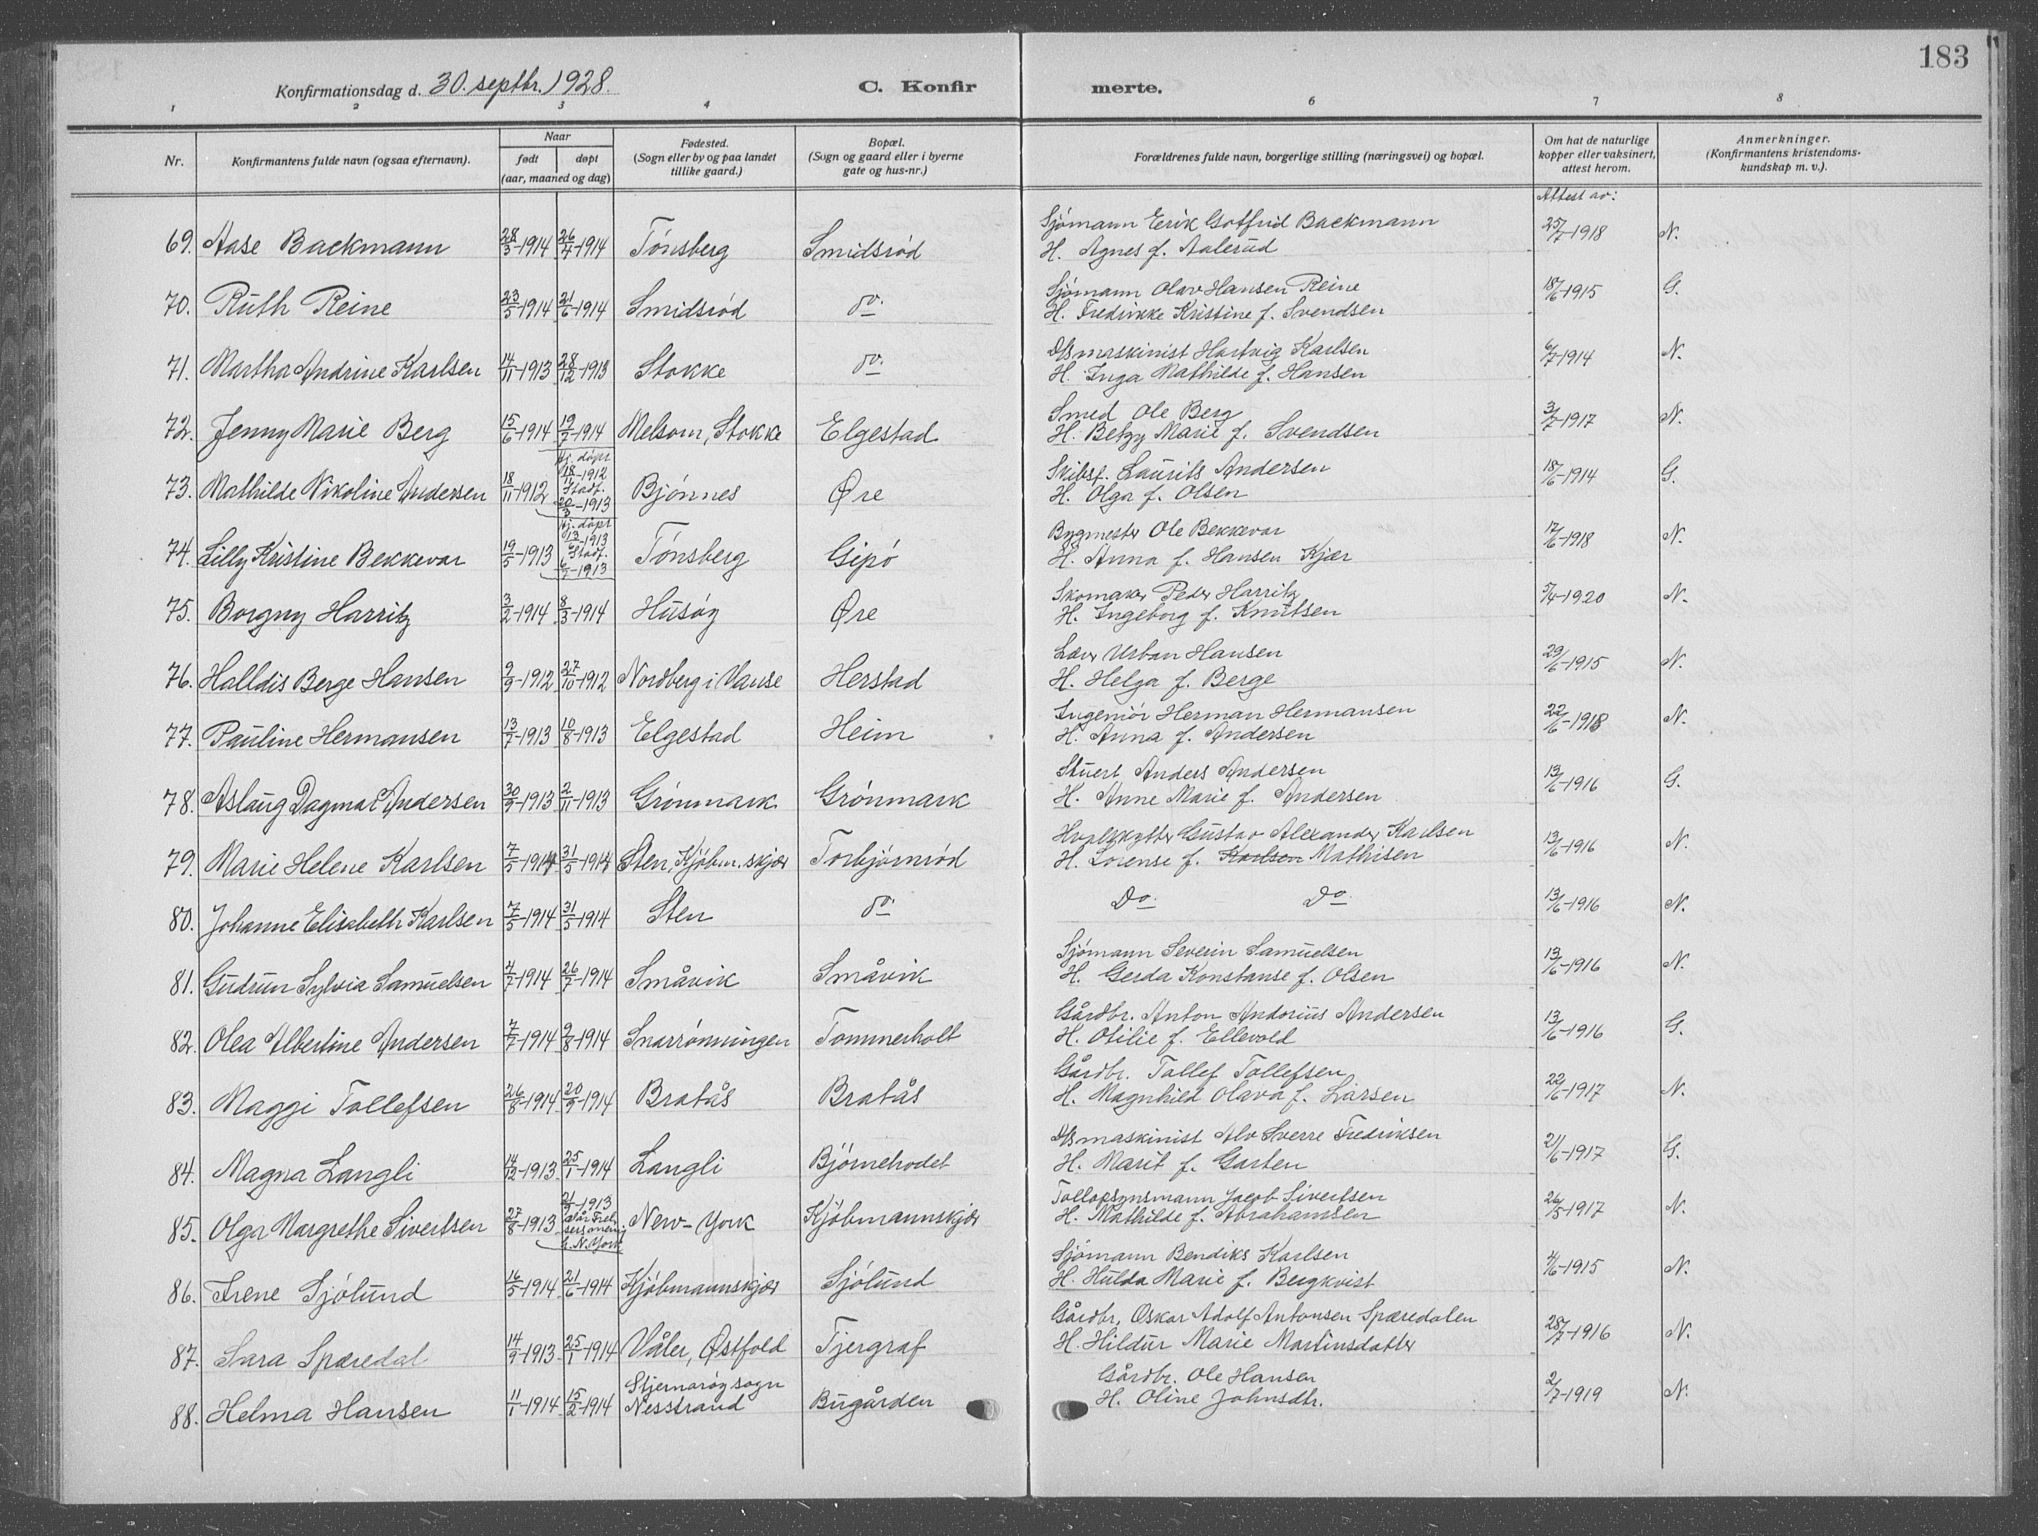 183
Konfirmationsdag d. 30. septbr. 1928. C. Konfirmerte.
1 2 3 4 5 6 7 8
Nr. | Konfirmantens fulde navn (ogsaa efternavn). | Naar født døpt (aar, maaned og dag) | Fødested. (Sogn eller by og paa landet tillike gaard.) | Bopæl. (Sogn og gaard eller i byerne gate og hus-nr.) | Forældrenes fulde navn, borgerlige stilling (næringsvei) og bopæl. | Om hat de naturlige kopper eller vaksinert, attest herom. | Anmerkninger. (Konfirmantens kristendomskundskap m. v.).
Attest av:
69. Aase Backmann 28/3-1914 26/4-1914 Tønsberg Smidsrød Sjømann Erik Gotfrid Backmann
H. Agnes f. Aalerud 25/7-1918 N.
70. Ruth Reine 23/5-1914 21/6-1914 Smidsrød do. Sjømann Olav Hansen Reine
H. Fredrikke Kristine f. Svendsen 18/6-1915 G.
71. Martha Andrine Karlsen 14/11-1913 28/12-1913 Stokke do. D/Smaskinist Hartvig Karlsen
H. Inga Mathilde f. Hansen 6/7-1914 N.
72. Jenny Marie Berg 15/6-1914 19/7-1914 Melsom, Stokke Elgestad Smed Ole Berg
H. Betzy Marie f. Svendsen 3/7-1917 N.
73. Mathilde Nikoline Andersen 18/11-1912 Hj. døpt 18/11-1912 Stadf. 20/3-1913 Bjønnes Øre Skibsf. Laurits Andersen
H. Olga f. Olsen 18/6-1914 G.
74. Lilly Kristine Bekkevar 19/5-1913 Hj. døpt 13/6-1913 Stadf. 6/7-1913 Tønsberg Gipø Bygmester Ole Bekkevar
H. Anna f. Hansen Kjær 17/6-1918 N.
75. Borgny Harritz 3/2-1914 8/3-1914 Husøy Øre Skomaker Peder Harritz
H. Ingeborg f. Knutsen 5/4-1920 N.
76. Halldis Berge Hansen 9/9-1912 27/10-1912 Nordberg i Vanse Herstad Lærer Urban Hansen
H. Helga f. Berge 29/6-1915 N.
77. Pauline Hermansen 13/7-1913 10/8-1913 Elgestad Heim Ingeniør Herman Hermansen
H. Anna f. Andersen 22/6-1918 N.
78. Aslaug Dagmar Andersen 30/9-1913 2/11-1913 Grønmark Grønmark Stuert Anders Andersen
H. Anne Marie f. Andersen 13/6-1916 G.
79. Marie Helene Karlsen 7/5-1914 31/5-1914 Sten, Kjøbm.skjær Torbjørnrød Hvalskytter Gustav Alexander Karlsen
H. Lorense f. Karlsen Mathisen 13/6-1916 N.
80. Johanne Elisabeth Karlsen 7/5-1914 31/5-1914 Sten do. Do. Do. 13/6-1916 N.
81. Gudrun Sylvia Samuelsen 4/7-1914 26/7-1914 Småvik Småvik Sjømann Severin Samuelsen
H. Gerda Konstanse f. Olsen 13/6-1916 N.
82. Olea Albertine Andersen 7/7-1914 9/8-1914 Snarrønningen Tommerholt Gårdbr. Anton Andorius Andersen
H. Otilie f. Ellevold 13/6-1916 G.
83. Maggi Tollefsen 26/8-1914 20/9-1914 Bratås Bratås Gårdbr. Tollef Tollefsen
H. Magnhild Olava f. Larsen 22/6-1917 N.
84. Magna Langli 14/12-1913 25/1-1914 Langli Bjørnehodet D/Smaskinist Alv Sverre Fredriksen
H. Marit f. Garten 21/6-1917 G.
85. Olga Margrethe Sivertsen 27/8-1913 21/9-1913 New-York Kjøbmannskjær Tollopsynsmann Jacob Sivertsen
H. Mathilde f. Abrahamsen 26/5-1917 N.
86. Irene Sjølund 16/5-1914 21/6-1914 Kjøbmannskjær Sjølund Sjømann Bendiks Karlsen
H. Hulda Marie f. Bergkvist 4/6-1915 N.
87. Sara Spæredal 14/9-1913 25/1-1914 Våler, Østfold Tjergraf Gårdbr. Oskar Adolf Antonsen Spæredalen
H. Hildur Marie Martinsdatter 28/7-1916 N.
88. Helma Hansen 11/1-1914 15/2-1914 Stjernarøy sogn Nesstrand Bugården Gårdbr. Ole Hansen
H. Oline Johnsdtr. 2/7-1919 N.